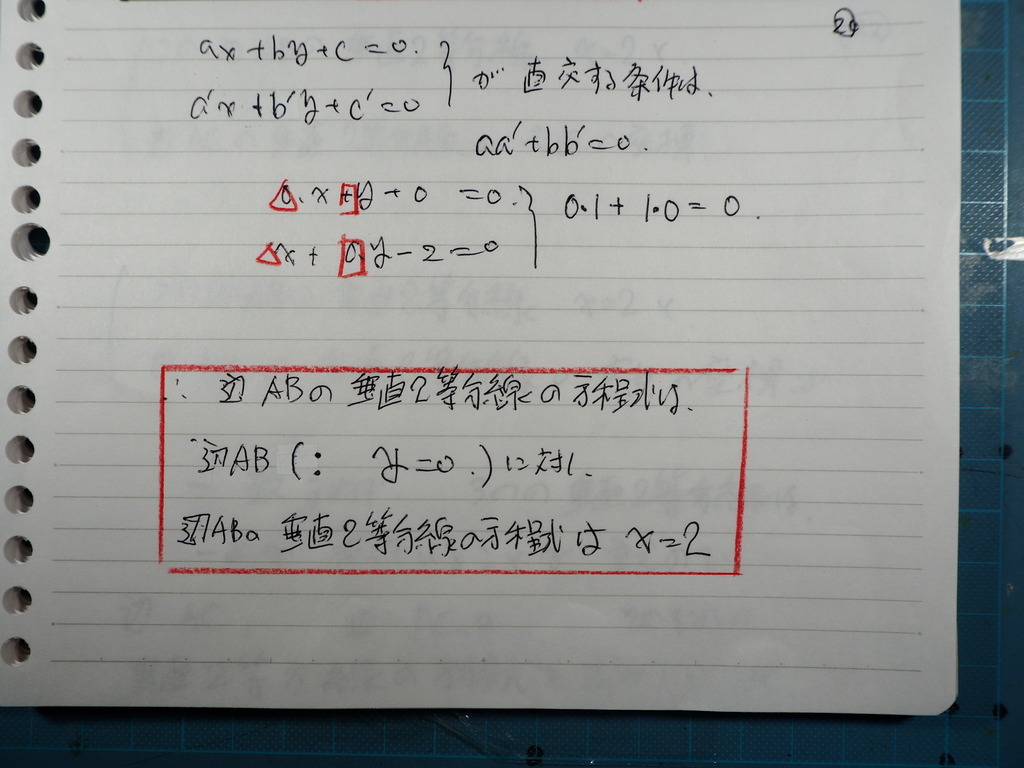 ax+by+c=0.
a'x+b'y+c'=0
が直交する条件は、
aa'+bb'=0.
0.x+y+0 =0.
x+0.y-2=0
0・1+1・0=0.
∴ 辺ABの垂直2等分線の方程式は、
辺AB(: y=0.)に対し、
辺ABの垂直2等分線の方程式は x=2